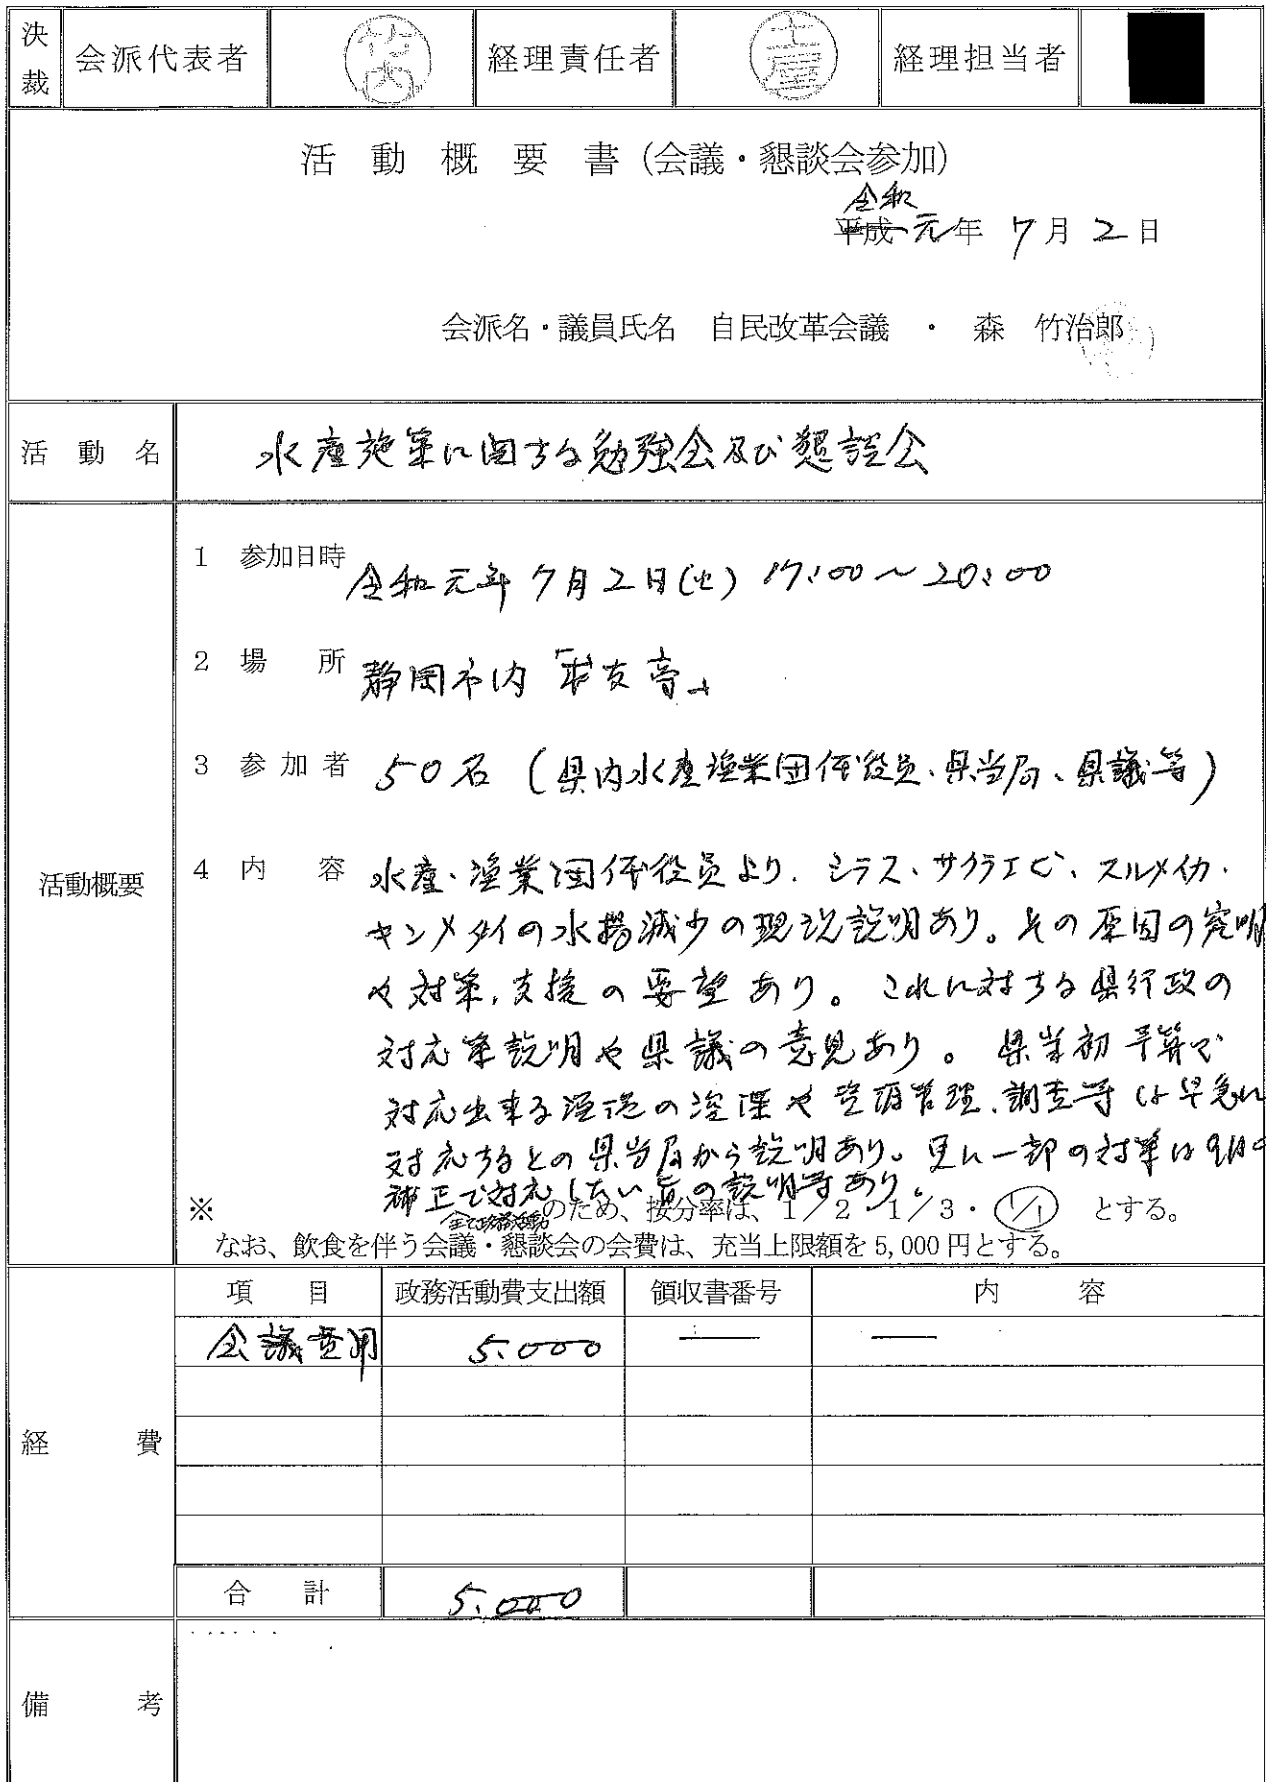 決裁 会派代表者 竹内 経理責任者 土屋 経理担当者
活動概要書(会議・懇談会参加)
令和
平成 元年 7月 2日
会派名・議員氏名 自民改革会議 ・ 森 竹治郎
活動名 水産施策に関する勉強会及び懇談会
活動概要
1 参加日時 令和元年7月2日(火) 17:00～20:00
2 場所 静岡市内「友
3 参加者 50名(県内水産漁業団体役員、県当局、県議等)
4 内容 水産・漁業団体役員より、シラス、サクラエビ、スルメイカ・
キンメダイの水揚減少の現況説明あり。その原因の究明
や対策、支援の要望あり。これに対する県行政の
対応策説明や県議の意見あり。県当初予算で
対応出来る漁港の浚渫や資源管理、調査等は早急に
対応するとの県当局から説明あり。更に一部の対策は9月の
補正で対応したい旨の説明等あり。
※ 全て政務活動のため、按分率は、1/2・1/3・1/1 とする。
なお、飲食を伴う会議・懇談会の会費は、充当上限額を5,000円とする。
経費
項目 政務活動費支出額 領収書番号 内容
会議費用 5,000 — —
合計 5,000
備考